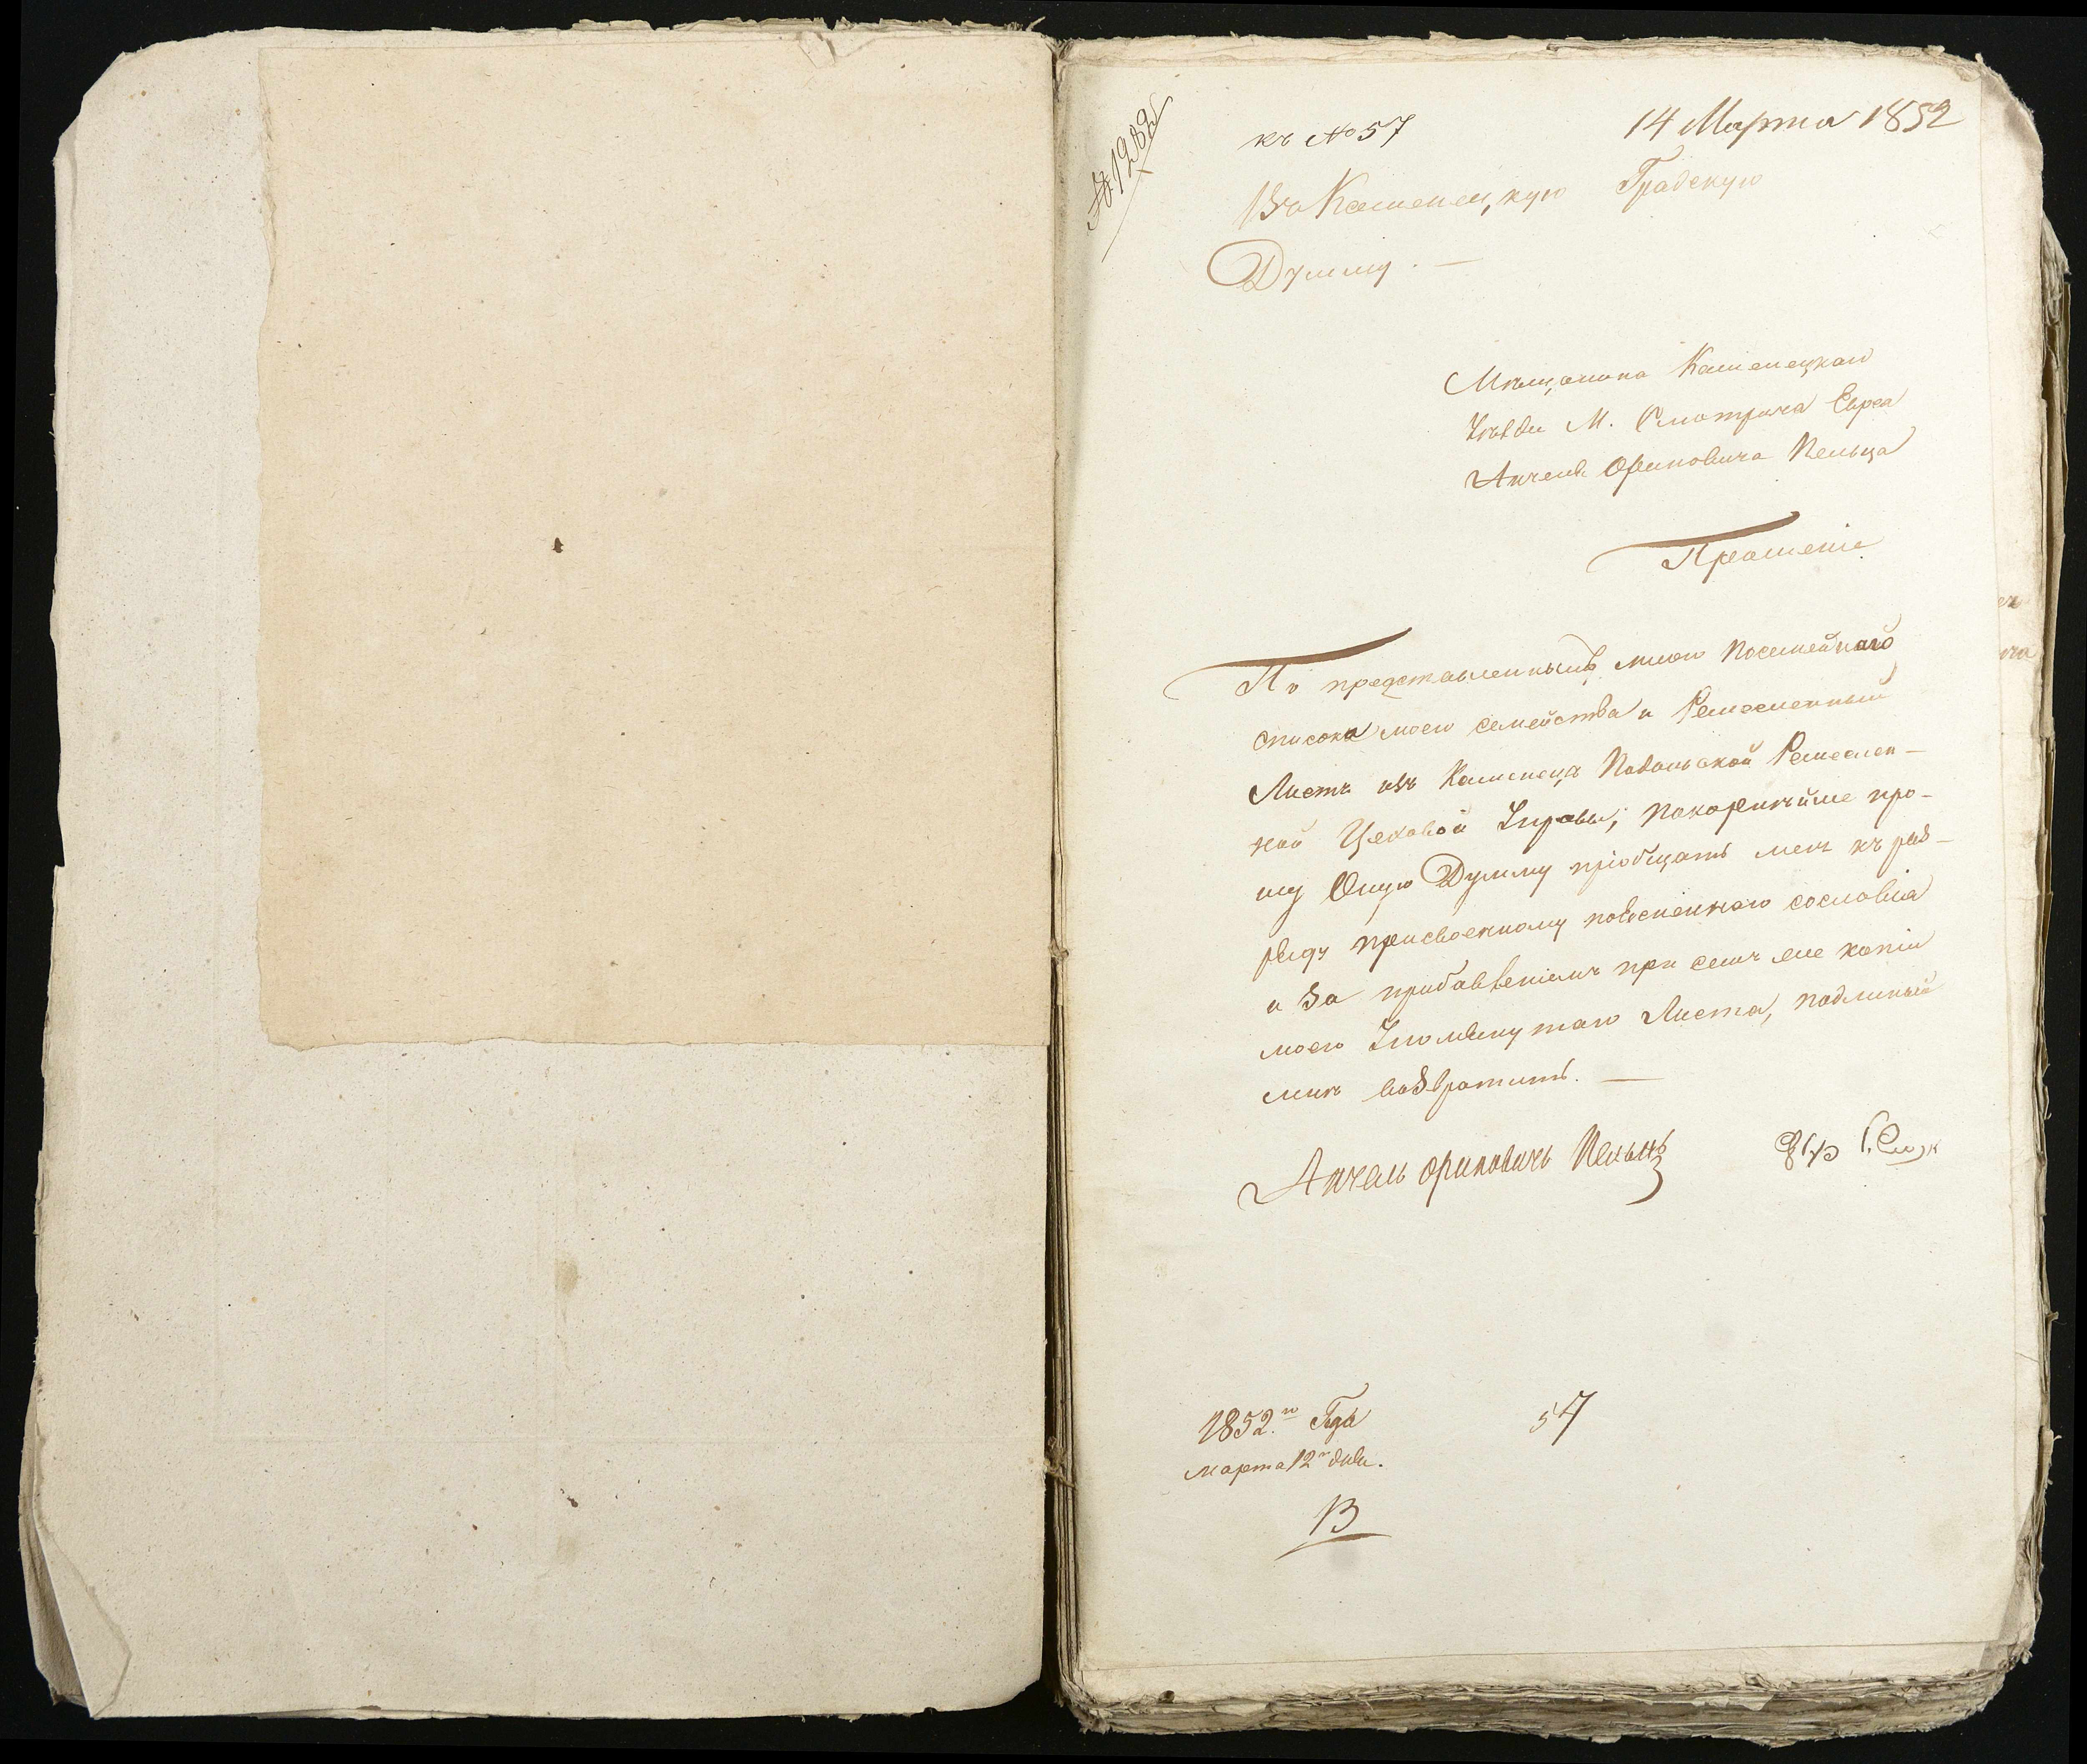 № 1982
къ № 57
14 Марта 1852
Въ Каменецкую Градскую
Думму. —
Мѣщанина Каменецкаго
Уѣзда М. Смотрича Еврея
Анчеля Ориновича Пельца
Прошеніе
По представленнымъ мною Посемейнаго
списока моего семейства и Ремесленный
Листъ изъ Каменецъ Подольской Ремеслен-
ной Цеховой Управы; покорнѣйше про-
шу Оную Думму пріобщать менѣ къ раз-
ряду присвоенному сословія
и за при семъ копіи
моего Упомянутаго Листа, подлиный
мнѣ возвратить. —
Анчель ориновичъ Пельцъ
1852.го Года
марта 12го дня.
57
В